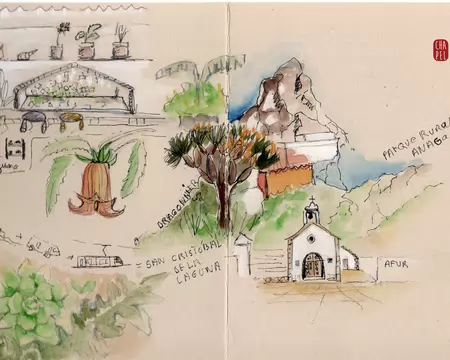 CHA
PEL
PARQUE RURAL
ANAGA
DRAGONNIER
SAN CRISTOBAL
DE LA
LAGUNA
AFUR